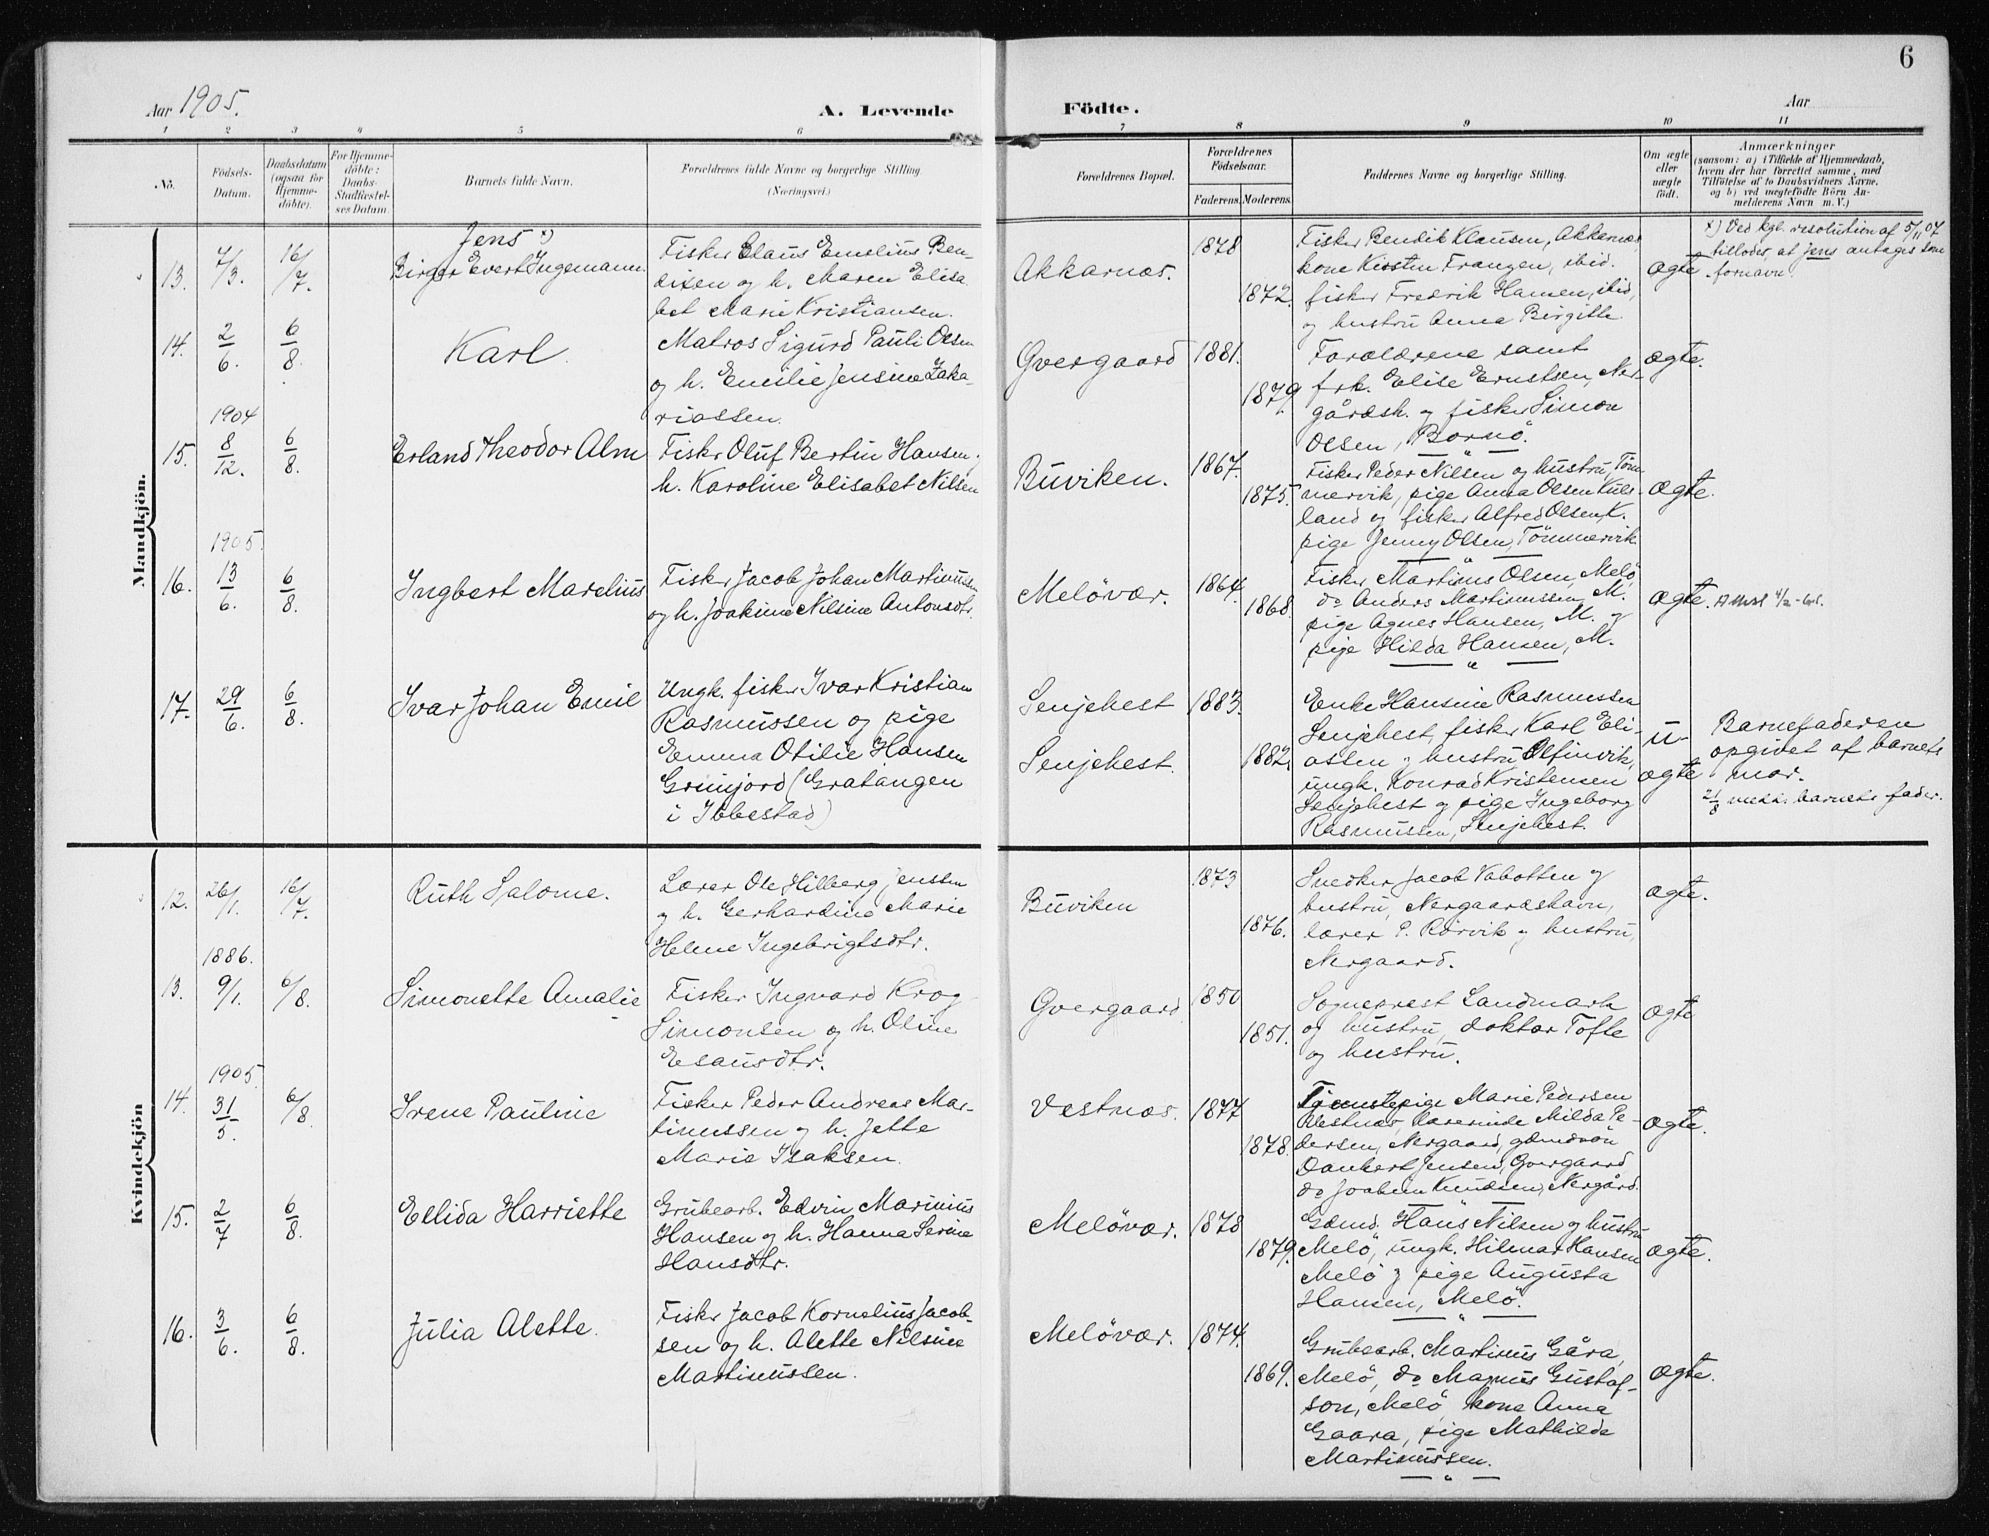 6
Aar 1905.
A. Levende Födte.
Aar
1 2 3 4 5 6 7 8 9 10 11
No.
Födsels-
Datum.
Daabsdatum
(ogsaa for
Hjemme-
döbte).
For Hjemme-
döbte:
Daabs-
Stadfæstel-
ses Datum.
Barnets fulde Navn.
Forældrenes fulde Navne og borgerlige Stilling
(Næringsvei.)
Forældrenes Bopæl.
Forældrenes
Födselsaar.
Faderens. Moderens.
Faddernes Navne og borgerlige Stilling.
Om ægte
eller
uægte
födt.
Anmærkninger
(saasom: a) i Tilfælde af Hjemmedaab,
hvem der har forrettet samme, med
Tilföielse af to Daabsvidners Navne,
og b) ved uægtefödte Börn An-
melderens Navn m. V.)
Mandkjön.
13. 7/3. 16/7.
Jens x)
Birger Evert Ingemann.
Fisker Claus Emelius Ben-
dixen og h. Maren Elisa
bet Marie Kristiansen.
Akkarnæs.
1878
1872.
Fisker Bendik Klausen, Akkarnæs
kone Kirsten Frangen, ibid.
fisker Fredrik Hansen, ibid,
og hustru Anna Birgitte
ægte
x) Ved kgl. resolution af 5/11 07
tillodes, at Jens antages som
fornavn
14. 2/6. 6/8.
Karl.
Matros Sigurd Pauli Olsen
og h. Emilie Jensine Zaka-
riassen.
Gvergaard
1881.
1879.
Forældrene samt
frk. Elise Ernstsen, Ner-
gårdsh. og fisker Simon
Olsen, Bornö.
ægte.
1904
15. 8/12. 6/8.
Erland Theodor Alm
Fisker Oluf Bertin Hansen,
h. Karoline Elisabet Nilsen
Buviken.
1867.
1875.
Fisker Peder Nilsen og hustru, Töm-
mervik, pige Anna Olsen
land og fisker Alfred Olsen, K.
pige Jenny Olsen, Tömmervik
ægte.
1905.
16. 13/6. 6/8.
Ingbert Marelius
Fisker Jacob Johan Martinussen
og h. Joakine Nilsine Antonsdtr.
Melövær.
1864.
1868.
Fisker Martinus Olsen, Melö,
do Anders Martinussen, M.
pige Agnes Hansen, M. og
pige Hilda Hansen, M.
ægte.
17. 29/6. 6/8.
Ivar Johan Emil
Ungk. fisker Ivar Kristian
Rasmussen og pige
Emma Otilie Hansen
Grunjord (Gratangen
i Ibbestad)
Senjehest
Senjehest.
1883.
1882.
Enke Hansine Rasmussen
Senjehest, fisker Karl Eli-
assen og hustru, Elfinvik,
ungk. Konrad Kristensen
Senjehest og pige Ingeborg
Rasmussen, Senjehest.
u-
ægte
Barnefaderen
opgivet af barnets
mor.
21/8 barnets fader.
Kvindekjön
12. 26/1. 16/7.
Ruth Salome.
Lærer Ole Hilberg Jenssen
og h. Gerhardine Marie
Helene Ingebrigtsdtr.
Buviken
1873
1876.
Snedker Jacob Vabotten og
hustru, Nergaardshavn,
lærer P. Rörvik og hustru,
Nergaard.
ægte.
1886.
13. 9/1. 6/8.
Simonette Amalie
Fisker Ingvard Krog
Simonsen og h. Oline
Esausdtr.
Gvergaard
1850
1851.
Sogneprest Landmark
og hustru, doktor Tofte
og hustru.
ægte
1905.
14. 31/5. 6/8.
Irene Pauline
Fisker Peder Andreas Mar-
tinussen og h. Jette
Marie Isaksen.
Vestnæs.
1877
1878.
Tjenstepige Marie Pedersen
Vestnæs, lærerinde Milda Pe-
dersen, Nergaard, gdmdssön
Dankert Jensen, Gvergaard
do Joakim Knudsen, Nergård.
ægte.
15. 2/7 6/8.
Ellida Harriette
Grubearb. Edvin Marinius
Hansen og h. Hanna Serine
Hansdtr.
Melövær.
1878
1879.
Gdmd. Hans Nilsen og hustru
Melö, ungk. Hilmar Hansen
Melö og pige Augusta
Hansen, Melö.
ægte.
16. 3/6. 6/8.
Julia Alette.
Fisker Jacob Kornelius Jacob-
sen og h. Alette Nilsine
Martinussen.
Melövær.
1874.
1869.
Grubearb. Martinus Gåra,
Melö, do Magnus Gustaf-
son, Melö kone Anna
Gaara, pige Mathilde
Martinussen.
ægte.